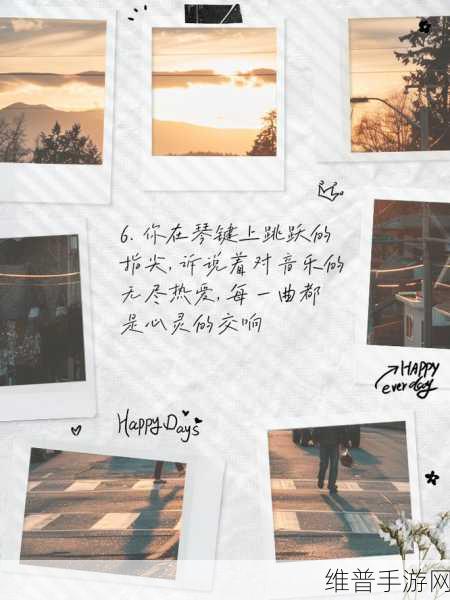 6. 你在琴键上跳跃的
指尖, 诉说着对音乐的
无尽热爱, 每一曲都
是心灵的交响
HAPPY
everday
Happy Days
维普手游网